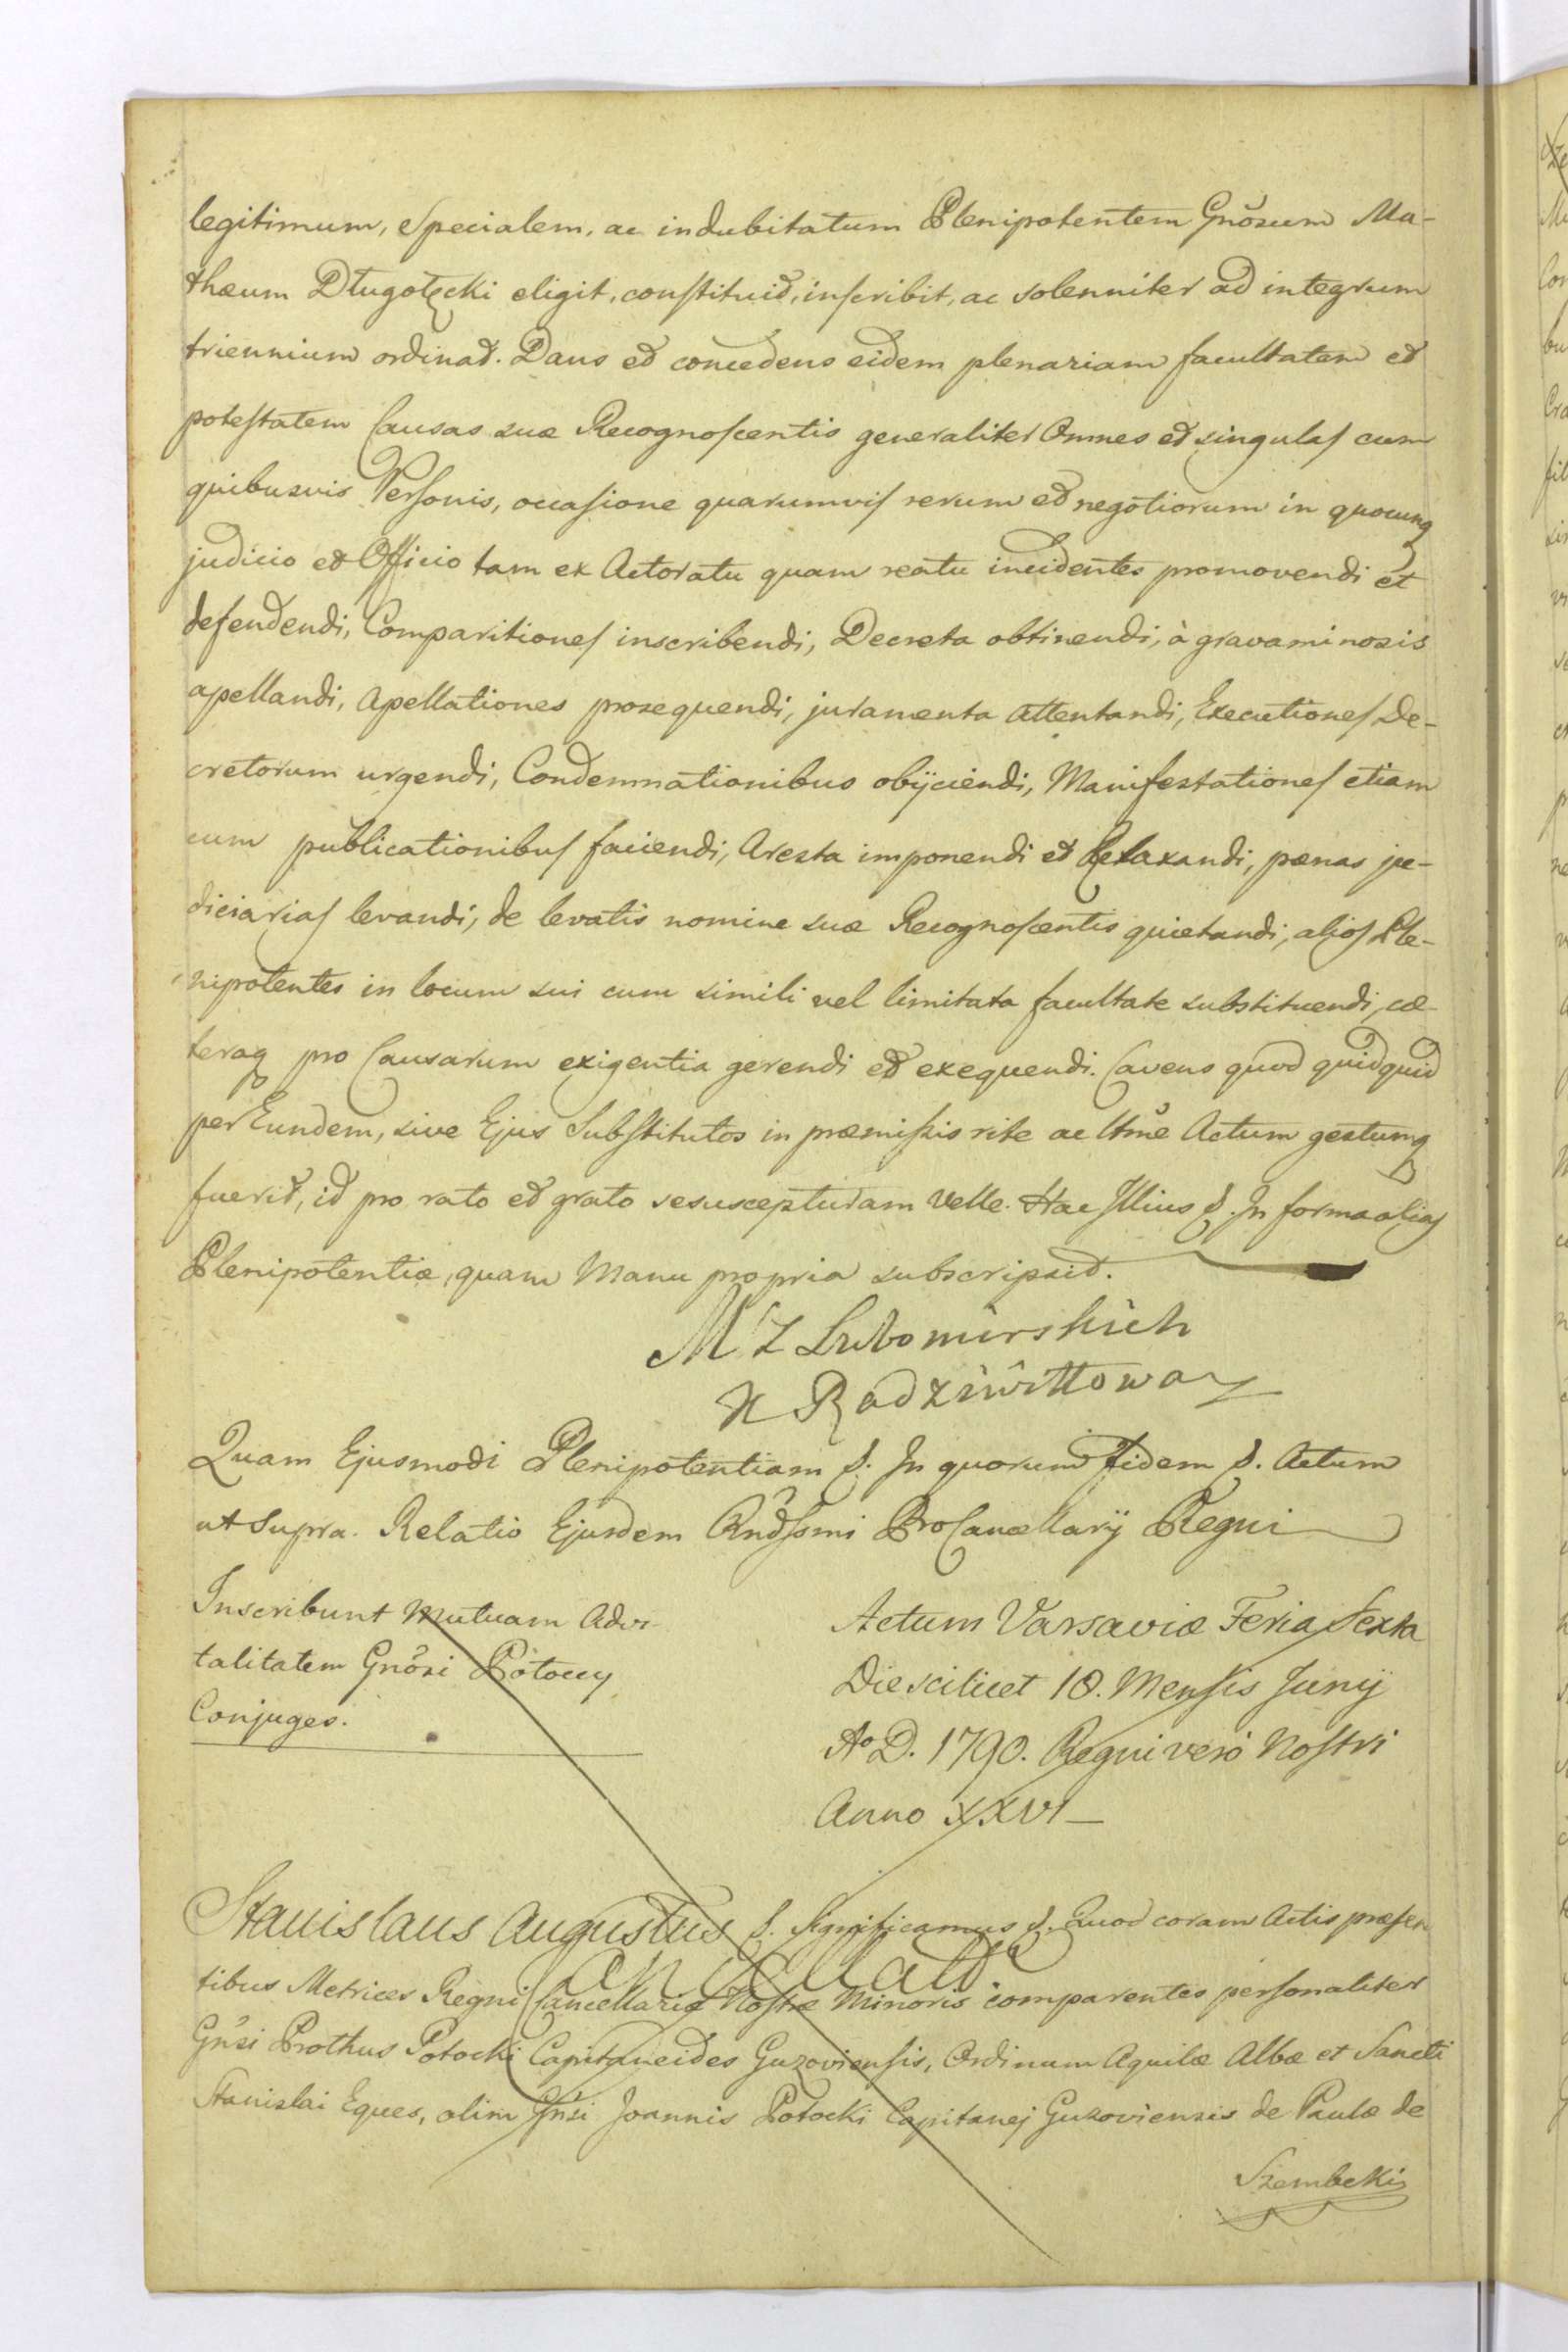 legitimum, Specialem, ac indubitatum Plenipotentem Gnõsum Ma-
thæum Długołęcki eligit, constituit, inscribit, ac solenniter ad integrum
triennium ordinat. Dans et concedens eidem plenariam facultatem et
potestatem Causas suæ Recognoscentis generaliter Omnes et singulas cum
quibusvis Personis, occasione quarumvis rerum et negotiorum in quocunq
judicio et Officio tam ex Actoratu quam reatu incidentes promovendi et
defendendi, Comparitiones inscribendi, Decreta obtinendi, à gravaminosis
apellandi, Apellationes prosequendi, juramenta attentandi, Executiones De-
cretorum urgendi, Condemnationibus obijciendi, Manifestationes etiam
cum publicationibus faciendi, Aresta imponendi et Relaxandi, pænas ju-
diciarias levandi, de levatis nomine suæ Recognoscentis quietandi, alios Ple-
nipotentes in locum sui cum simili vel limitata facultate substituendi, cæ-
teraq pro Causarum exigentia gerendi et exequendi. Cavens quod quidquid
per Eundem, sive Ejus Substitutos in præmissis rite ac ltmẽ Actum gestumq
fuerit, id pro rato et grato se suscepturam velle. Hac Illius &. In forma alias
Plenipotentiæ, quam Manu propria subscripsit.
M Z Lubomirskich
X Radziwiłłowa
Quam Ejusmodi Plenipotentiam &. In quorum Fidem &. Actum
ut Supra. Relatio Ejusdem Rndssmi ProCancellarij Regni
Inscribunt Mutuam Advi-
talitatem Gnõsi Potoccy
Conjuges.
Actum Varsaviæ Feria Sexta
Die scilicet 18. Mensis Junij
Aº D. 1790. Regni verò Nostri
Anno XXVI
Stanislaus Augustus &. Significamus &. Quod coram Actis præsen
Cancellatr
tibus Metrices Regni Cancellariæ Nostræ Minoris comparentes personaliter
Gnsi Prothus Potocki Capitaneides Guzoviensis, Ordinum Aquilæ Albæ et Sancti
Stanislai Eques, olim Gnsi Joannis Potocki Capitanej Guzoviensis de Paula de
Szembeki